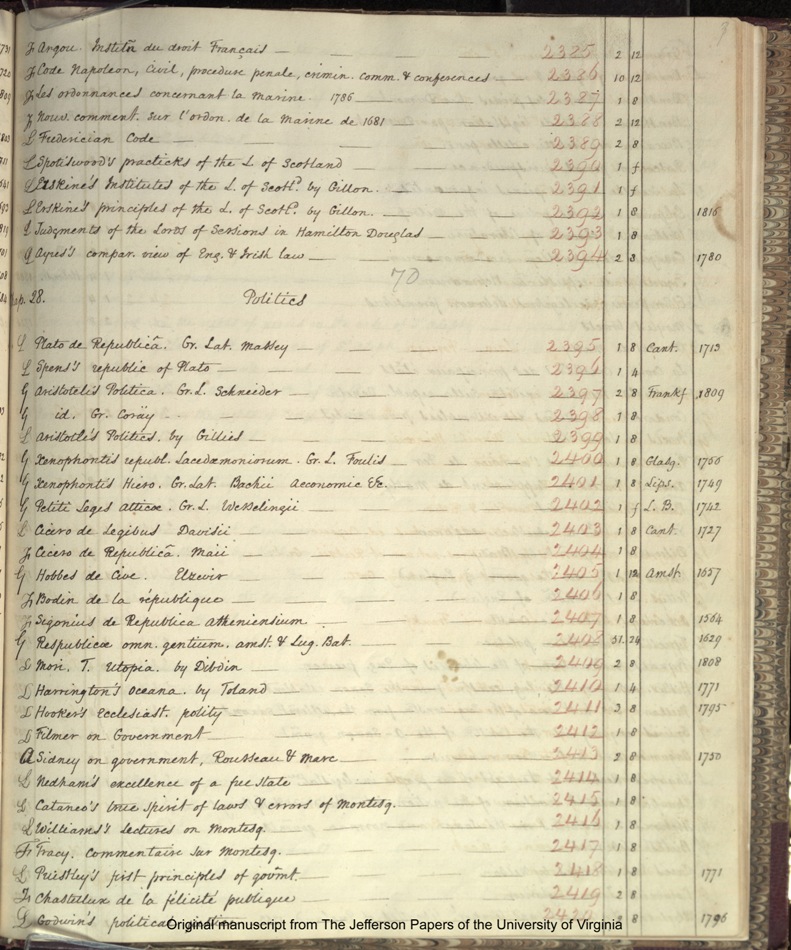 Fr Argou. Institñ du droit Français — 2385 2 12
Fr Code Napoleon, Civil, procedure penale, crimin. comm. & conferences — 2386 10 12
Fr Les ordonnances concernant la marine. 1786 — 2387 1 8
Fr Nouv. comment. sur l'ordon. de la Marine de 1681 2388 2 12
L Frederician Code — 2389 2 8
L Spotiswood's practicks of the L. of Scotland — 2390 1 f
L Erskine's Institutes of the L. of Scotld. by Gillon. — 2391 1 f
L Erskine's principles of the L. of Scotld. by Gillon. — 2392 1 8 1816
L Judgments of the Lords of Sessions in Hamilton Douglas — 2393 1 8
L Ayres's compar. view of Eng. & Irish law — 2394 2 8 1780
70
ap. 28. Politics
L Plato de Republicâ. Gr. Lat. Massey — 2395 1 8 Cant. 1713
L Spens's republic of Plato — 2396 1 4
G Aristotelis Politica. Gr. L. Schneider — 2397 2 8 Frankf 1809
G id. Gr. Coräy — 2398 1 8
L Aristotle's Politics. by Gillies — 2399 1 8
G Xenophontis republ. Lacedæmoniorum. Gr. L. Foulis — 2400 1 8 Glasg. 1756
G Xenophontis Hiero. Gr. Lat. Bachii Aeconomic &c. — 2401 1 8 Lips. 1749
G Petiti Leges Atticæ. Gr. L. Wesselingii — 2402 1 f L. B. 1742
L Cicero de Legibus Davisii — 2403 1 8 Cant. 1727
Fr Cicero de Republicâ. Maii — 2404 1 8
G Hobbes de Cive. Elzevir — 2405 1 12 Amst. 1657
Fr Bodin de la république — 2406 1 8
Fr Sigonius de Republica Atheniensium — 2407 1 8 1564
G Respublicæ omn. gentium. Amst. & Lug. Bat. — 2408 31. 24 1629
L Mori. T. Utopia. by Dibdin — 2409 2 8 1808
L Harrington's Oceana. by Toland — 2410 1 4 1771
L Hooker's Ecclesiast. polity — 2411 3 8 1795
L Filmer on Government — 2412 1 8
A Sidney on government, Rousseau & Marc — 2413 2 8 1750
L Nedham's excellence of a free state — 2414 1 8
L Cataneo's true spirit of laws & errors of Montesq. 2415 1 8
L Williams's Lectures on Montesq. — 2416 1 8
Fr Tracy. Commentaire sur Montesq. — 2417 1 8
L Priestley's first principles of govmt. — 2418 1 8 1771
Fr Chastellux de la félicité publique — 2419 2 8
L Godwin's political 8 1796
Original manuscript from The Jefferson Papers of the University of Virginia